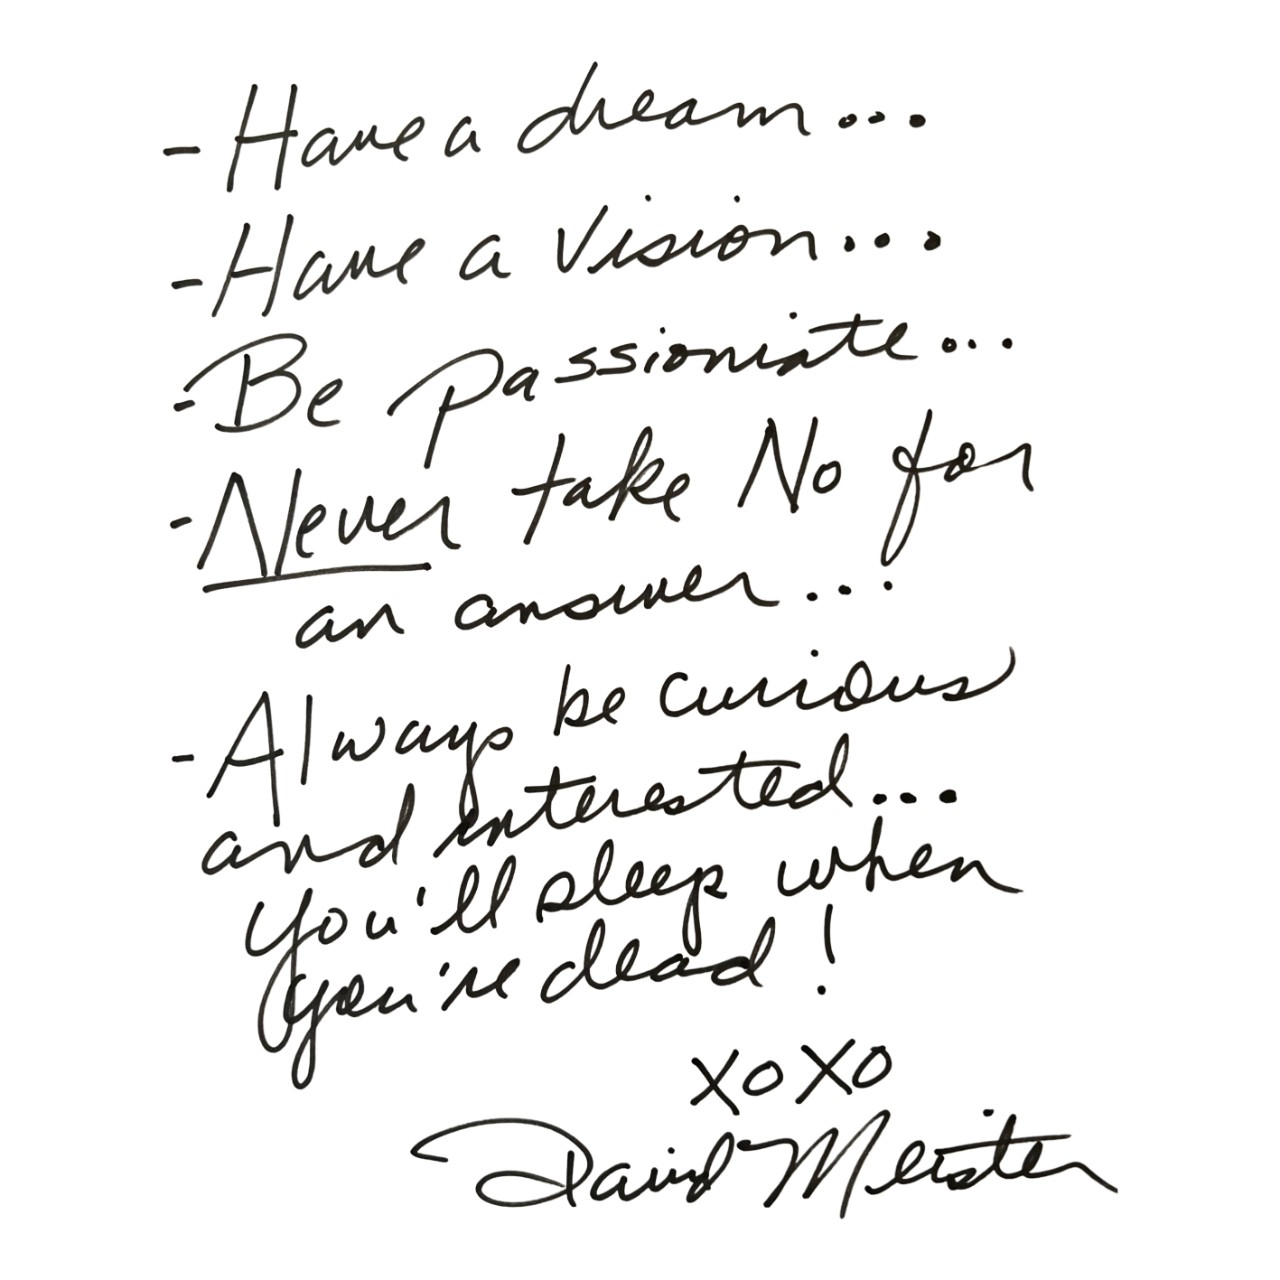 - Have a dream...
- Have a Vision...
- Be passioniate...
- Never take No for
an answer...
- Always be curious
and interested...
you'll sleep when
you're dead!
XOXO
David Meister